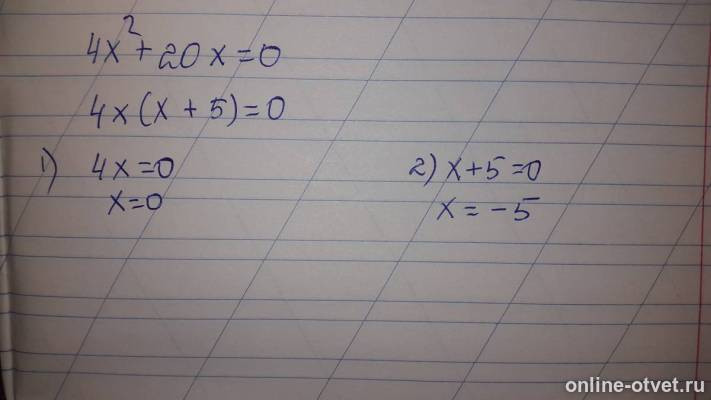 4x² + 20x = 0
4x(x + 5) = 0
1) 4x = 0
x = 0
2) x + 5 = 0
x = -5
online-otvet.ru